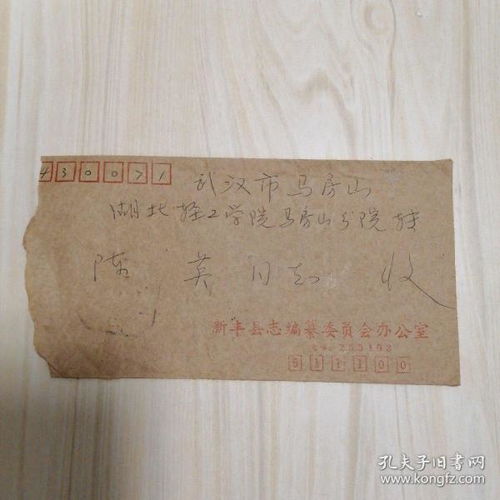 430071
武汉市马房山
湖北轻工学院马房山分院转
陈英同志 收
新丰县志编纂委员会办公室
511100
孔夫子旧书网
www.kongfz.com